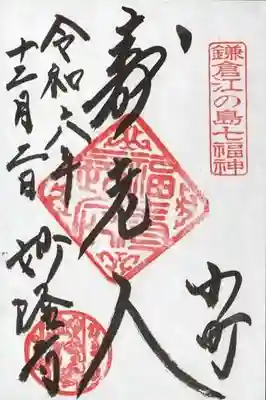 鎌倉江の島七福神
小町
寿老人
令和六年
十二月二日
妙隆寺